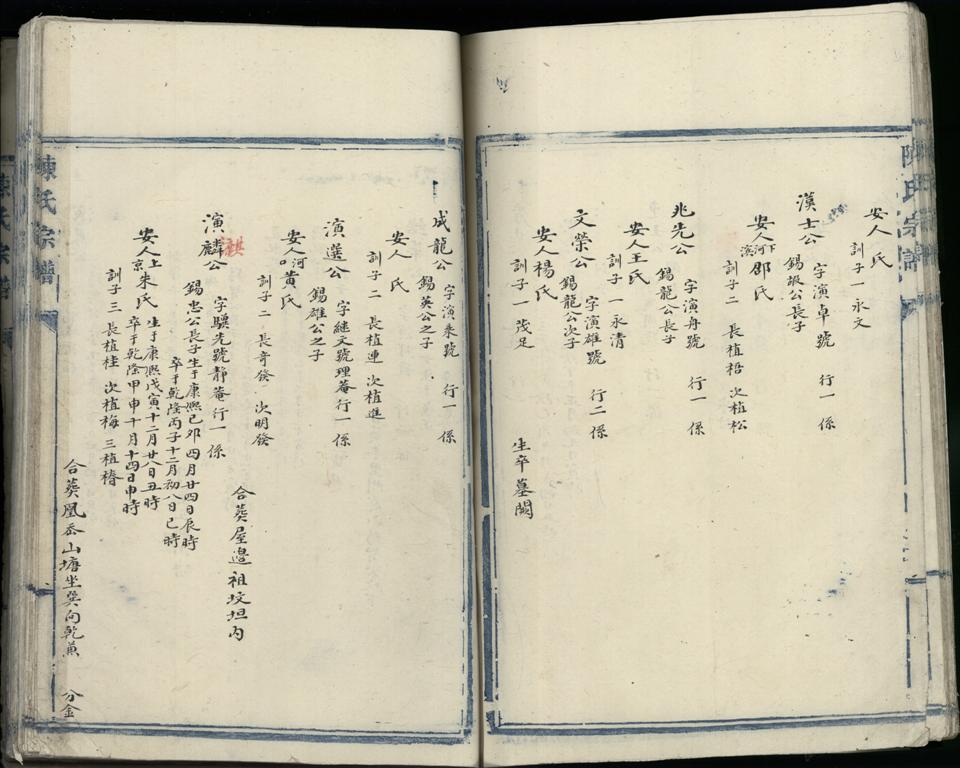 陳氏宗譜
安人 氏
訓子一永文
漢士公 字演卓號 行一 係
錫塅公長子
安人河下溪鄒氏
訓子二 長植梧 次植松
兆先公 字演舟號 行一 係
錫龍公長子
安人王氏
訓子一永清
文榮公 字演雄號 行二 係
錫龍公次子
安人楊氏
訓子一茂足
生卒墓闕
成龍公 字演來號 行一 係
錫英公之子
安人 氏
訓子二 長植連 次植進
演選公 字継文號理菴行一係
錫雄公之子
安人河口黃氏
訓子二 長竒發 次明發
合葵屋邉祖坟坦内
麒
演麟公 字驥先號靜菴行一係
錫忠公長子生于康熙己夘四月廿四日辰時
卒于乾隆丙子十二月初八日已時
安人上京朱氏 生于康熙戊寅十二月廿八日丑時
卒于乾隆甲申十月十四日申時
訓子三 長植桂 次植梅 三植椿
合葵凰岙山塘坐巽向乾兼 分金
陳氏宗譜
陳氏宗譜